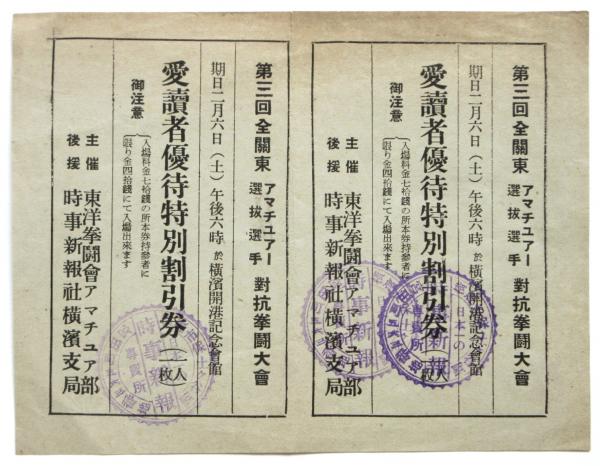 第三回全關東 アマチユアー 選拔選手 對抗拳鬪大會
期日二月六日(土)午後六時 於橫濱開港記念會館
愛讀者優待特別割引券(一人一枚)
御注意 入場料金七拾錢の所本券持參者に
限り金四拾錢にて入場出來ます
主催 東洋拳鬪會アマチユア部
後援 時事新報社橫濱支局
第三回全關東 アマチユアー 選拔選手 對抗拳鬪大會
期日二月六日(土)午後六時 於橫濱開港記念會館
愛讀者優待特別割引券(一人一枚)
御注意 入場料金七拾錢の所本券持參者に
限り金四拾錢にて入場出來ます
主催 東洋拳鬪會アマチユア部
後援 時事新報社橫濱支局
日本一の
時事新報
專賣所